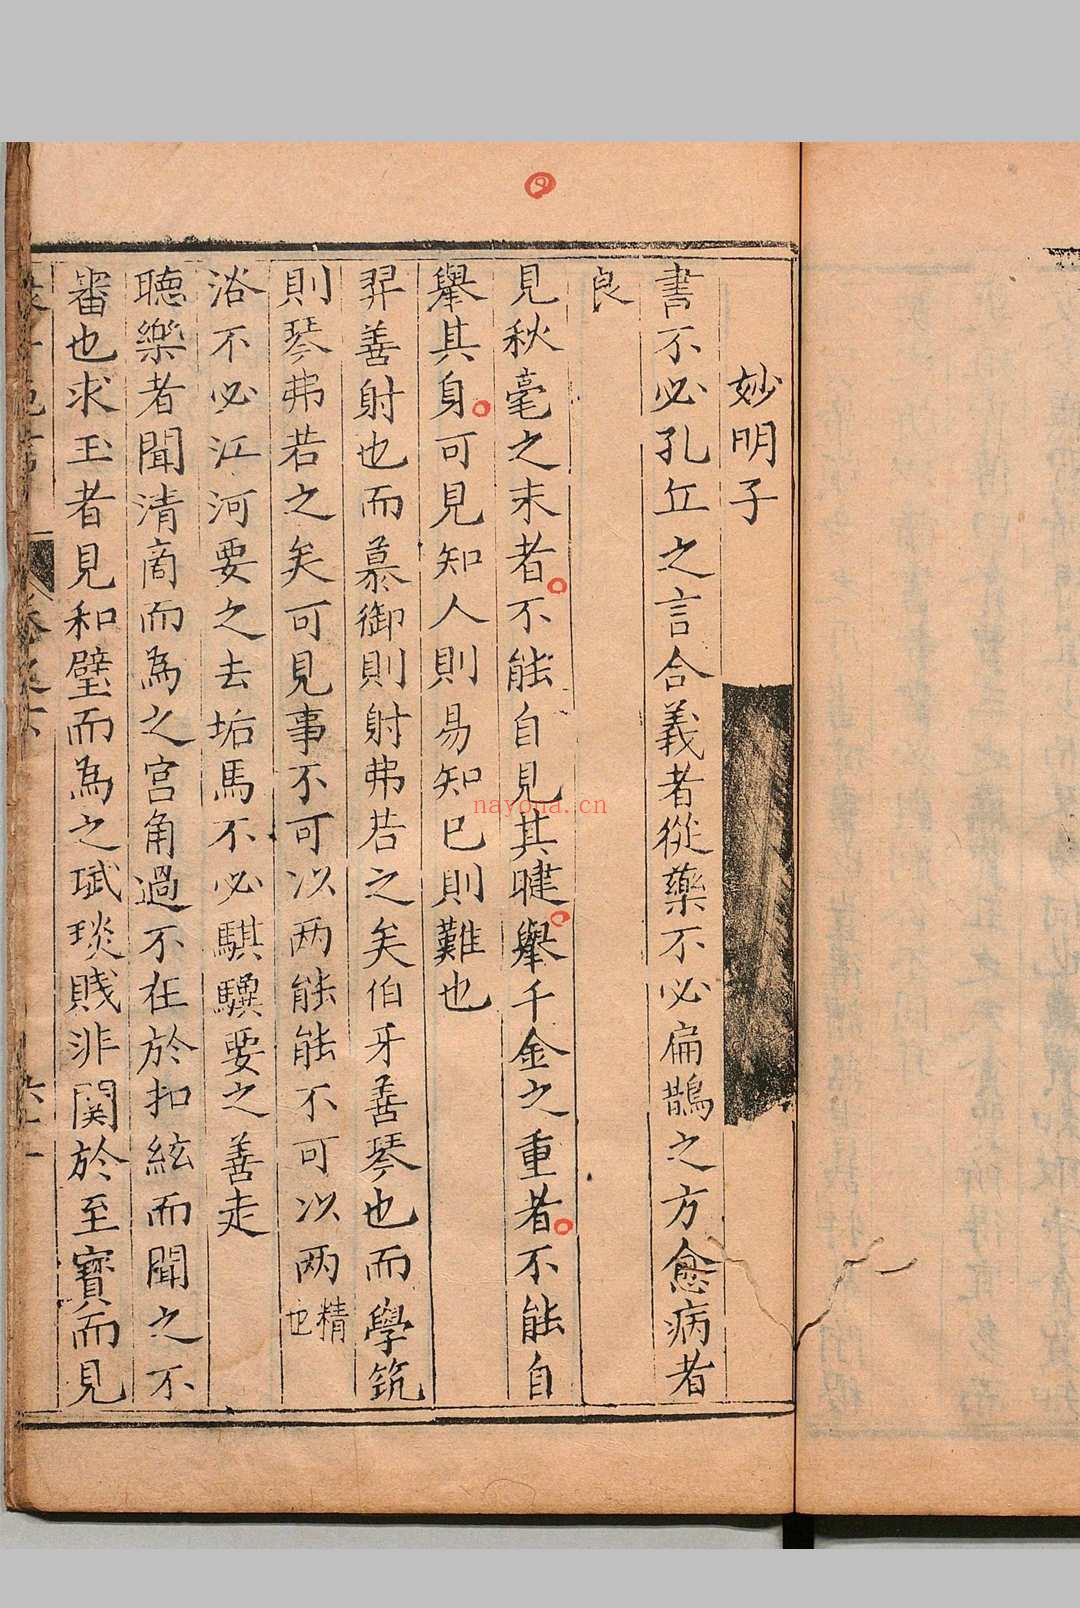 妙明子
書不必孔丘之言合義者從藥不必扁鵲之方愈病者
良
見秋毫之末者不能自見其睫舉千金之重者不能自
舉其身可見知人則易知已則難也
羿善射也而慕御則射弗若之矣伯牙善琴也而學筑
則琴弗若之矣可見事不可以两能能不可以两精也
浴不必江河要之去垢馬不必騏驥要之善走
聽樂者聞清商而為之宮角過不在於扣絃而聞之不
審也求玉者見和璧而為之珷琰賤非関於至寳而見
nayona.cn